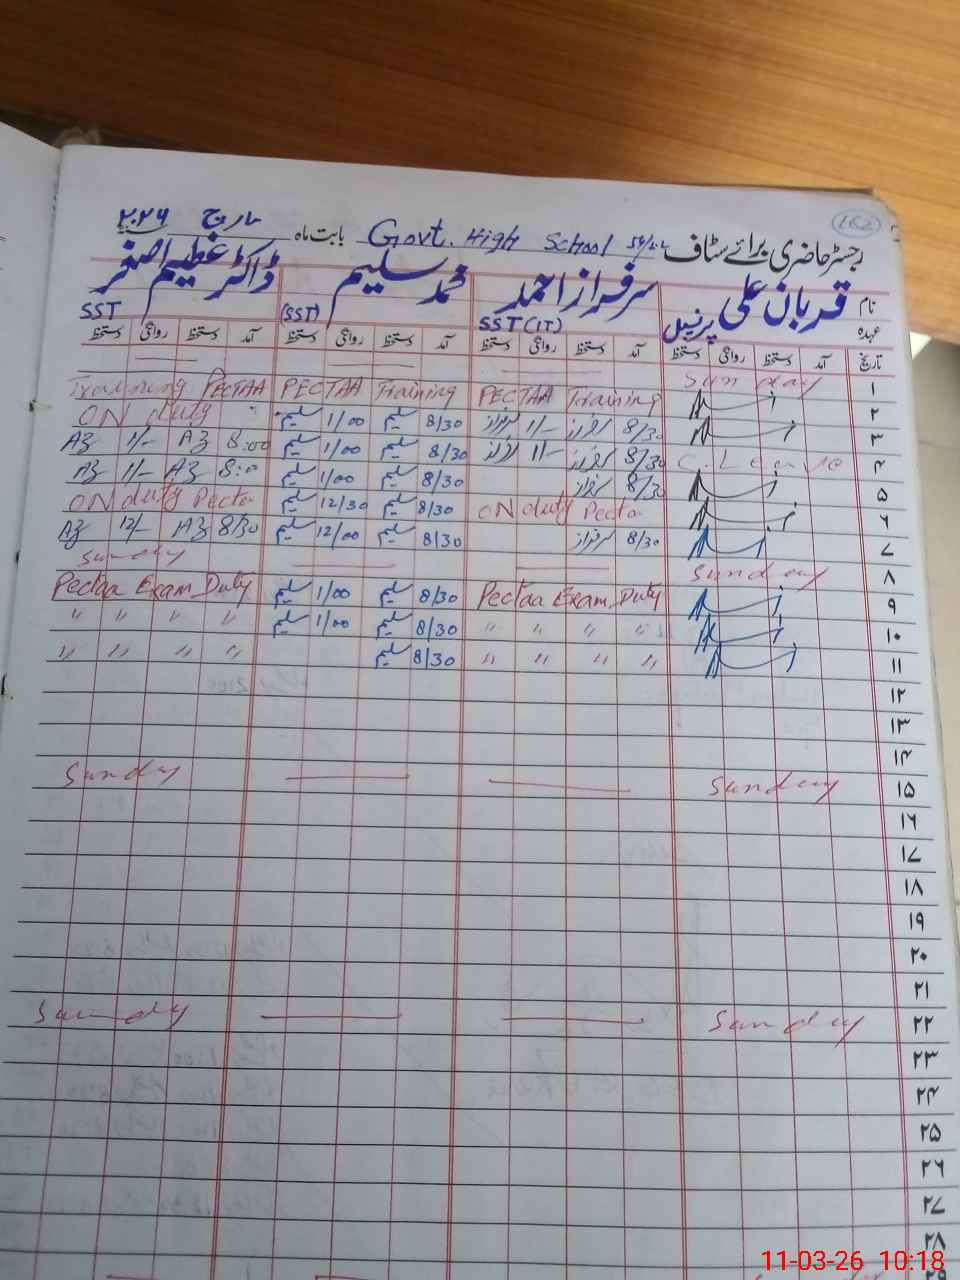 162
رجسٹر حاضری برائے سٹاف Govt. High School بابت ماہ مارچ ۲۰۲۶
نام قربان علی سرفراز احمد محمد سلیم ڈاکٹر عظیم اصغر
عہدہ پرنسپل SST (IT) (SST) SST
تاریخ آمد دستخط روانگی دستخط آمد دستخط روانگی دستخط آمد دستخط روانگی دستخط آمد دستخط روانگی دستخط
۱ Sunday
۲ PECTAA Training PECTAA Training Training PECTAA
۳ 8/30 سرفراز 1/- سرفراز 8/30 سلیم 1/00 سلیم ON duty
۴ C. Leave 8/30 سرفراز 1/- سرفراز 8/30 سلیم 1/00 سلیم 8:00 1/-
۵ 8/30 سرفراز 8/30 سلیم 1/00 سلیم 8:0 1/-
۶ ON duty Pecta 8/30 سلیم 12/30 سلیم ON duty Pecta
۷ 8/30 سرفراز 8/30 سلیم 12/00 سلیم 8/30 12/-
۸ Sunday Sunday
۹ Pectaa Exam Duty 8/30 سلیم 1/00 سلیم Pectaa Exam Duty
۱۰ " " " " 8/30 سلیم 1/00 سلیم " " " "
۱۱ " " " " 8/30 سلیم " " " "
۱۲
۱۳
۱۴
۱۵ Sunday Sunday
۱۶
۱۷
۱۸
۱۹
۲۰
۲۱
۲۲ Sunday Sunday
۲۳
۲۴
۲۵
۲۶
۲۷
۲۸
۲۹
11-03-26 10:18